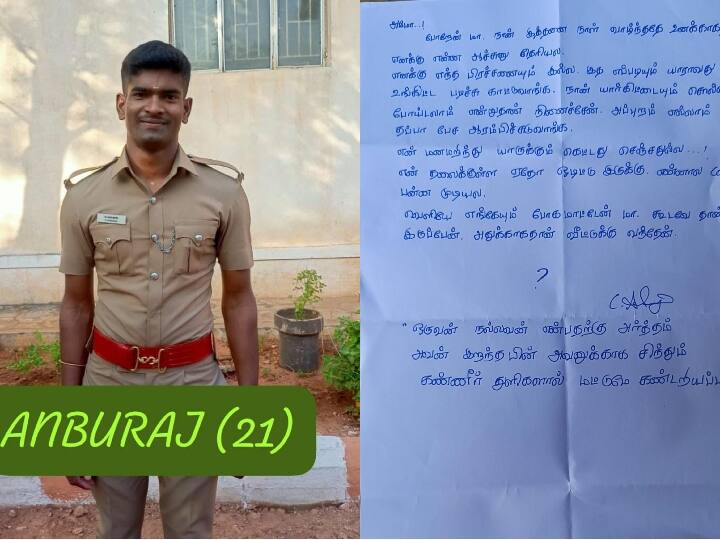 ANBURAJ (21)
அம்மா...!
போறேன் மா. நான் இத்தனை நாள் வாழ்ந்ததே உனக்காக
எனக்கு என்ன ஆச்சுனு தெரியல.
எனக்கு எந்த பிரச்சனையும் இல்ல. இத எப்படியும் யாராவது
உங்கிட்ட படிச்சு காட்டுவாங்க. நான் யார்கிட்டையும்
போய்டலாம் என்றுதான் நினைச்சேன். அப்புறம் எல்லாம்
தப்பா பேச ஆரம்பிச்சுடுவாங்க.
என் மனமறிந்து யாருக்கும் கெட்டது செஞ்சதுல்ல...!
என் தலைக்குள்ள ஏதோ ஓடிட்டு இருக்கு. என்னால
பன்ன முடியல.
வெளியே எங்கேயும் போகமாட்டேன் மா. கூடவே தான்
இருப்பேன். அதுக்காகதான் வீட்டுக்கு வந்தேன்.
?
"ஒருவன் நல்லவன் என்பதற்கு அர்த்தம்
அவன் இறந்த பின் அவனுக்காக சிந்தும்
கண்ணீர் துளிகளால் மட்டுமே